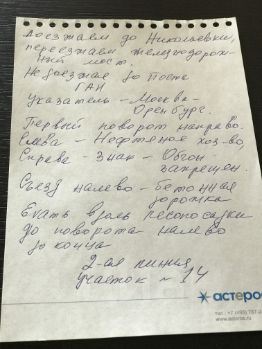 Доезжаем до Николаевки,
переезжаем железнодорож-
ный мост.
Не доезжая до Поста
ГАИ
Указатель - Москва -
Оренбург.
Первый поворот направо.
Слева - Нефтяное хоз-во,
Справа - Знак - Обгон
запрещен.
Съезд налево - Бетонная
дорожка
Ехать вдоль лесопосадки
до поворота налево
до конца
2-ая линия
участок №14
астерос
www.asteros.ru